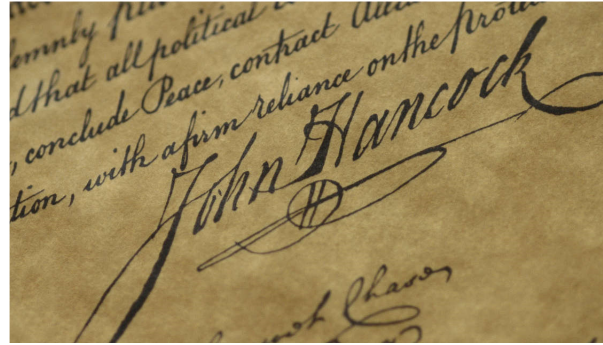 emnly
d that all political
, conclude Peace, contract
tion, with a firm reliance on the
John Hancock
Chase